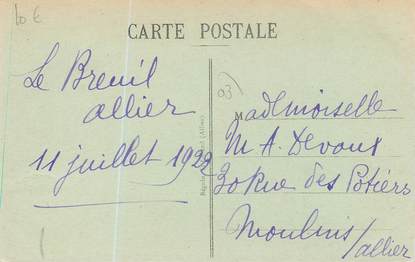 10 €
CARTE POSTALE
Le Breuil
allier
11 juillet 1922
03)
Mademoiselle
M A. Devoux
30 Rue des Potiers
Moulins
/allier